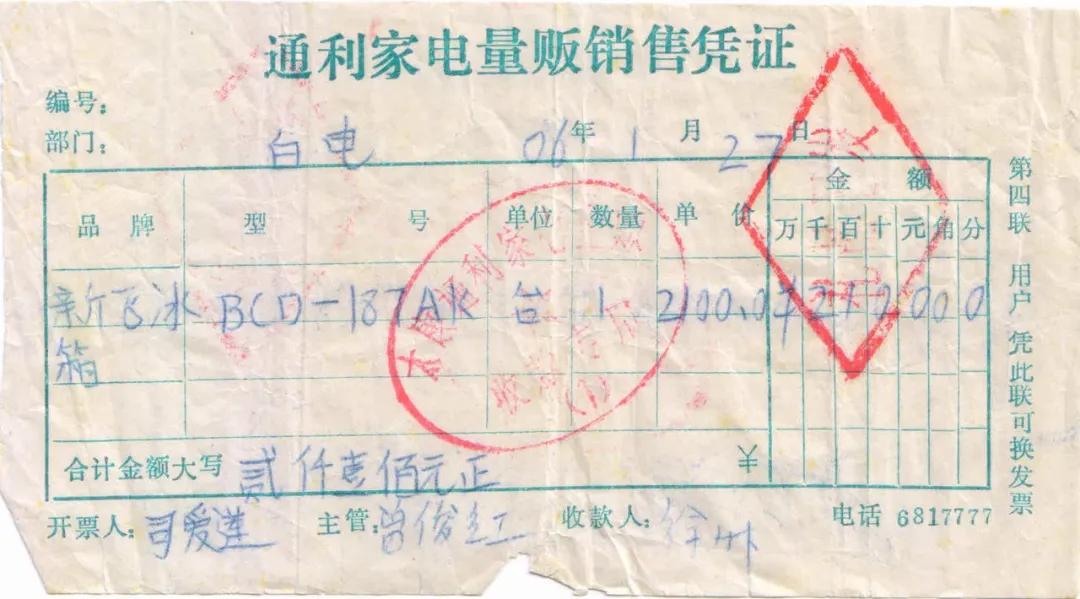 通利家电量贩销售凭证
编号:
部门: 白电 06年 1月 27日
品牌 型号 单位 数量 单价 金额
万千百十元角分
新飞冰箱 BCD-187AK 台 1 2100.0
合计金额大写 贰仟壹佰元正 ¥
开票人: 司爱莲 主管: 曾俊红 收款人: 徐 电话 6817777
第四联 用户凭此联可换发票
通利家电
收款
(1)